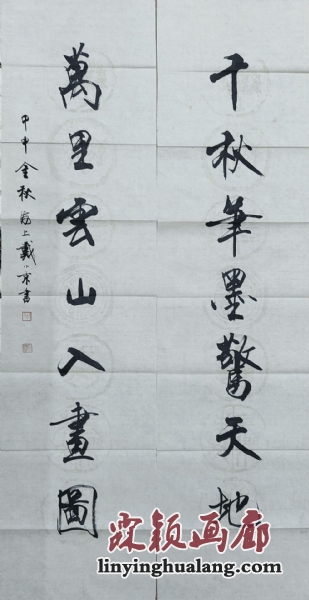 千秋筆墨驚天地
萬里雲山入畫圖
甲申金秋海上戴小京書
霖颖画廊
linyinghualang.com